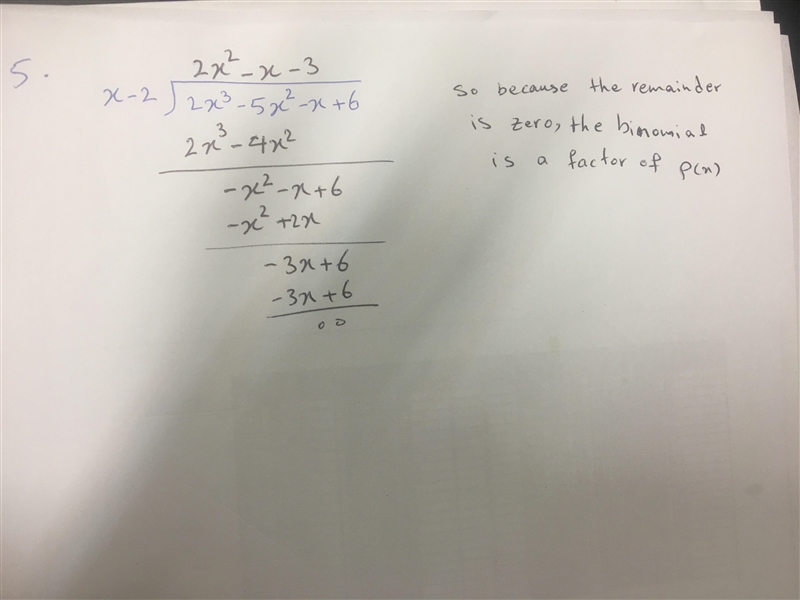 5.
2x² - x - 3
x - 2 ) 2x³ - 5x² - x + 6
2x³ - 4x²
-x² - x + 6
-x² + 2x
-3x + 6
-3x + 6
00
so because the remainder
is zero, the binomial
is a factor of p(x)